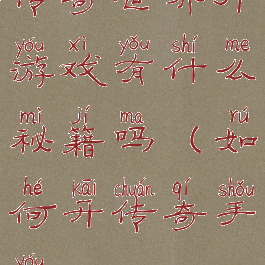 yóu xì yǒu shí me
游戏有什么
mì jí ma rú
秘籍吗（如
hé kāi chuán qí shǒu
何开传奇手
yóu